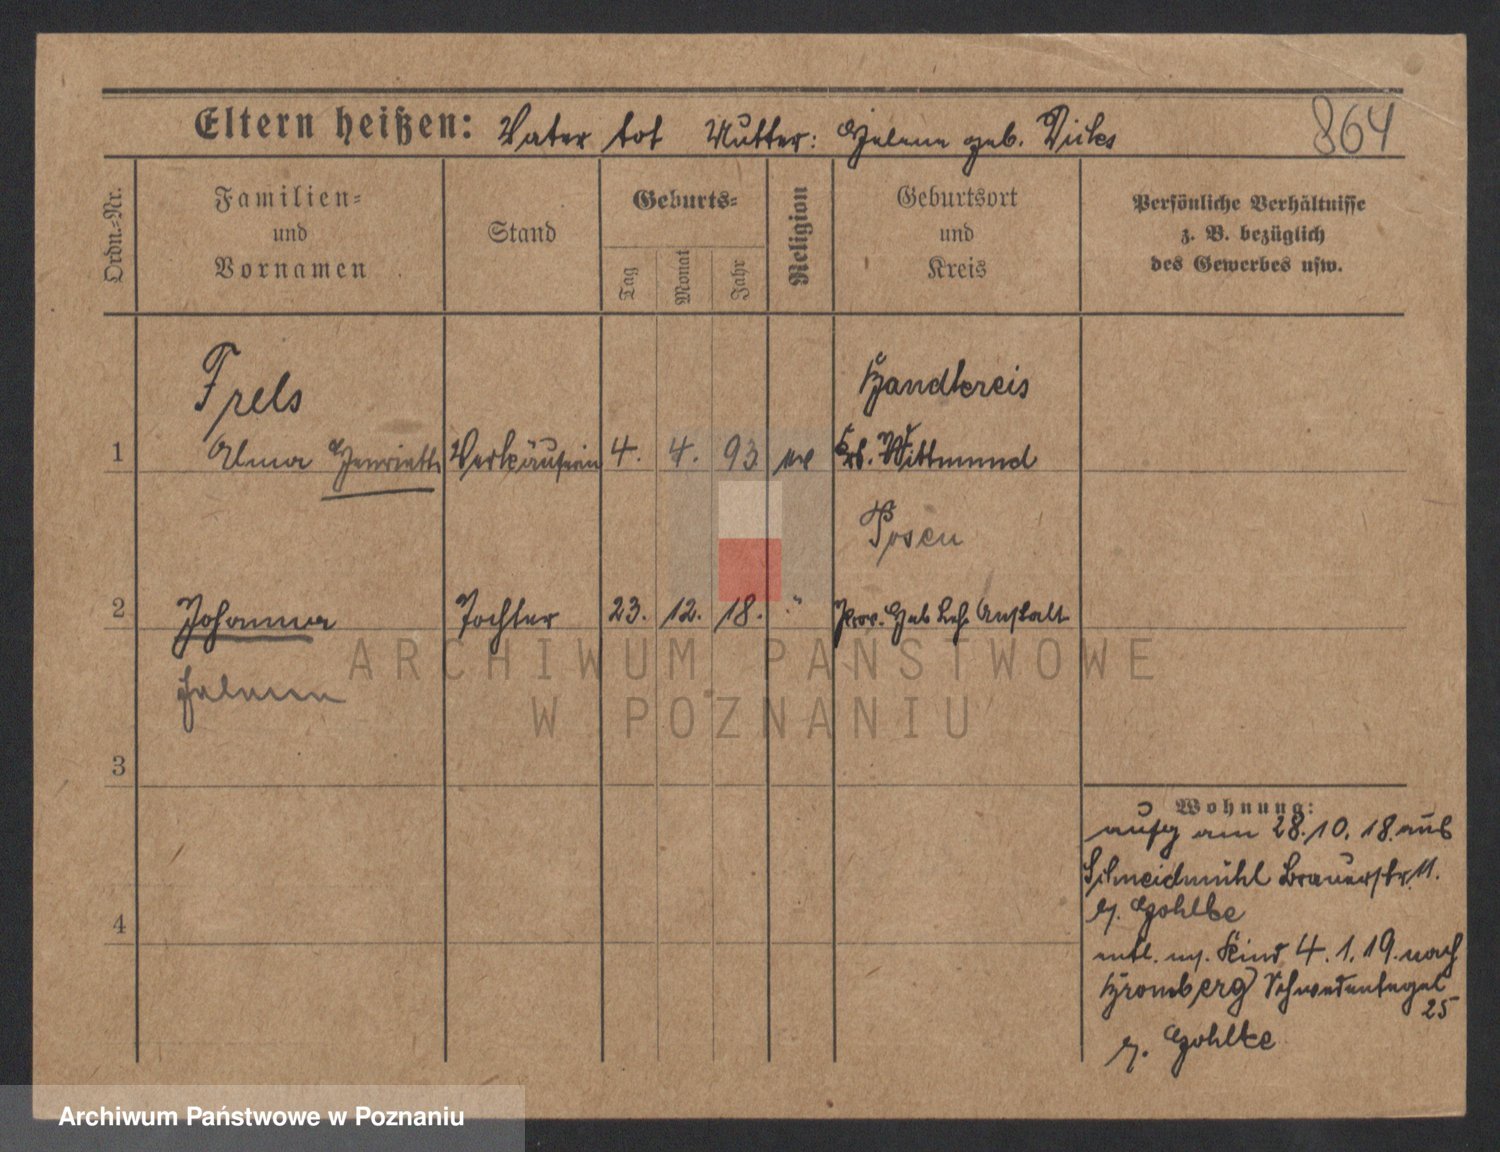 Eltern heißen: Vater tot Mutter: Helene geb. Dirks
864
Ordn.-Nr.
Familien-
und
Vornamen
Stand
Geburts-
Tag
Monat
Jahr
Religion
Geburtsort
und
Kreis
Persönliche Verhältnisse
z. B. bezüglich
des Gewerbes usw.
Frels
1 Alma Henriette Verkäuferin 4. 4. 93 Wittmund
Posen
2 Johanna Tochter 23. 12. 18. " Prov. Heb Lehr Anstalt
Helene
3
4
Wohnung:
am 28.10.18. aus
Schneidmühl Brauerstr. 11.
b. Gohlke
entl. m. Kind 4.1.19. nach
Bromberg
25
b. Gohlke
ARCHIWUM PAŃSTWOWE
W POZNANIU
Archiwum Państwowe w Poznaniu